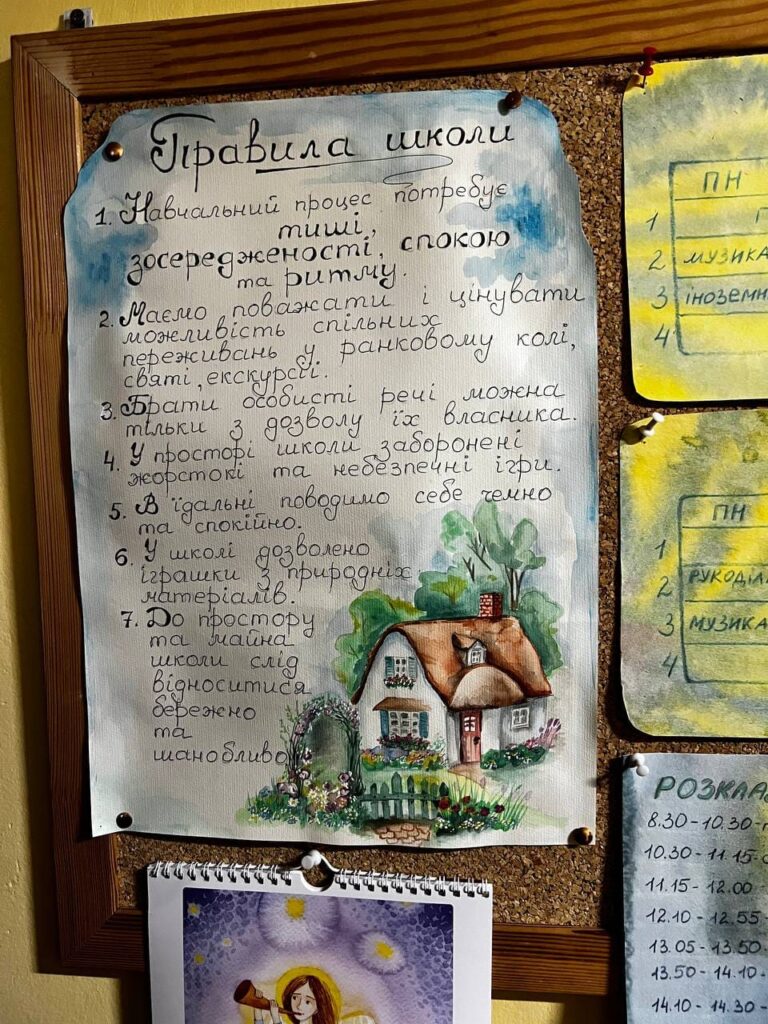 Правила школи
1. Навчальний процес потребує
тиші,
зосередженості, спокою
та ритму.
2. Маємо поважати і цінувати
можливість спільних
переживань у ранковому колі,
святі, екскурсії.
3. Брати особисті речі можна
тільки з дозволу їх власника.
4. У просторі школи заборонені
жорстокі та небезпечні ігри.
5. В їдальні поводимо себе чемно
та спокійно.
6. У школі дозволено
іграшки з природніх
матеріалів.
7. До простору
та майна
школи слід
відноситися
бережно
та
шанобливо
ПН
1
2 музика
3 іноземн
4
ПН
1
2 рукоділ
3 музика
4
РОЗКЛА
8.30 - 10.30 -
10.30 - 11.15 -
11.15 - 12.00 -
12.10 - 12.55 -
13.05 - 13.50 -
13.50 - 14.10 -
14.10 - 14.30 -